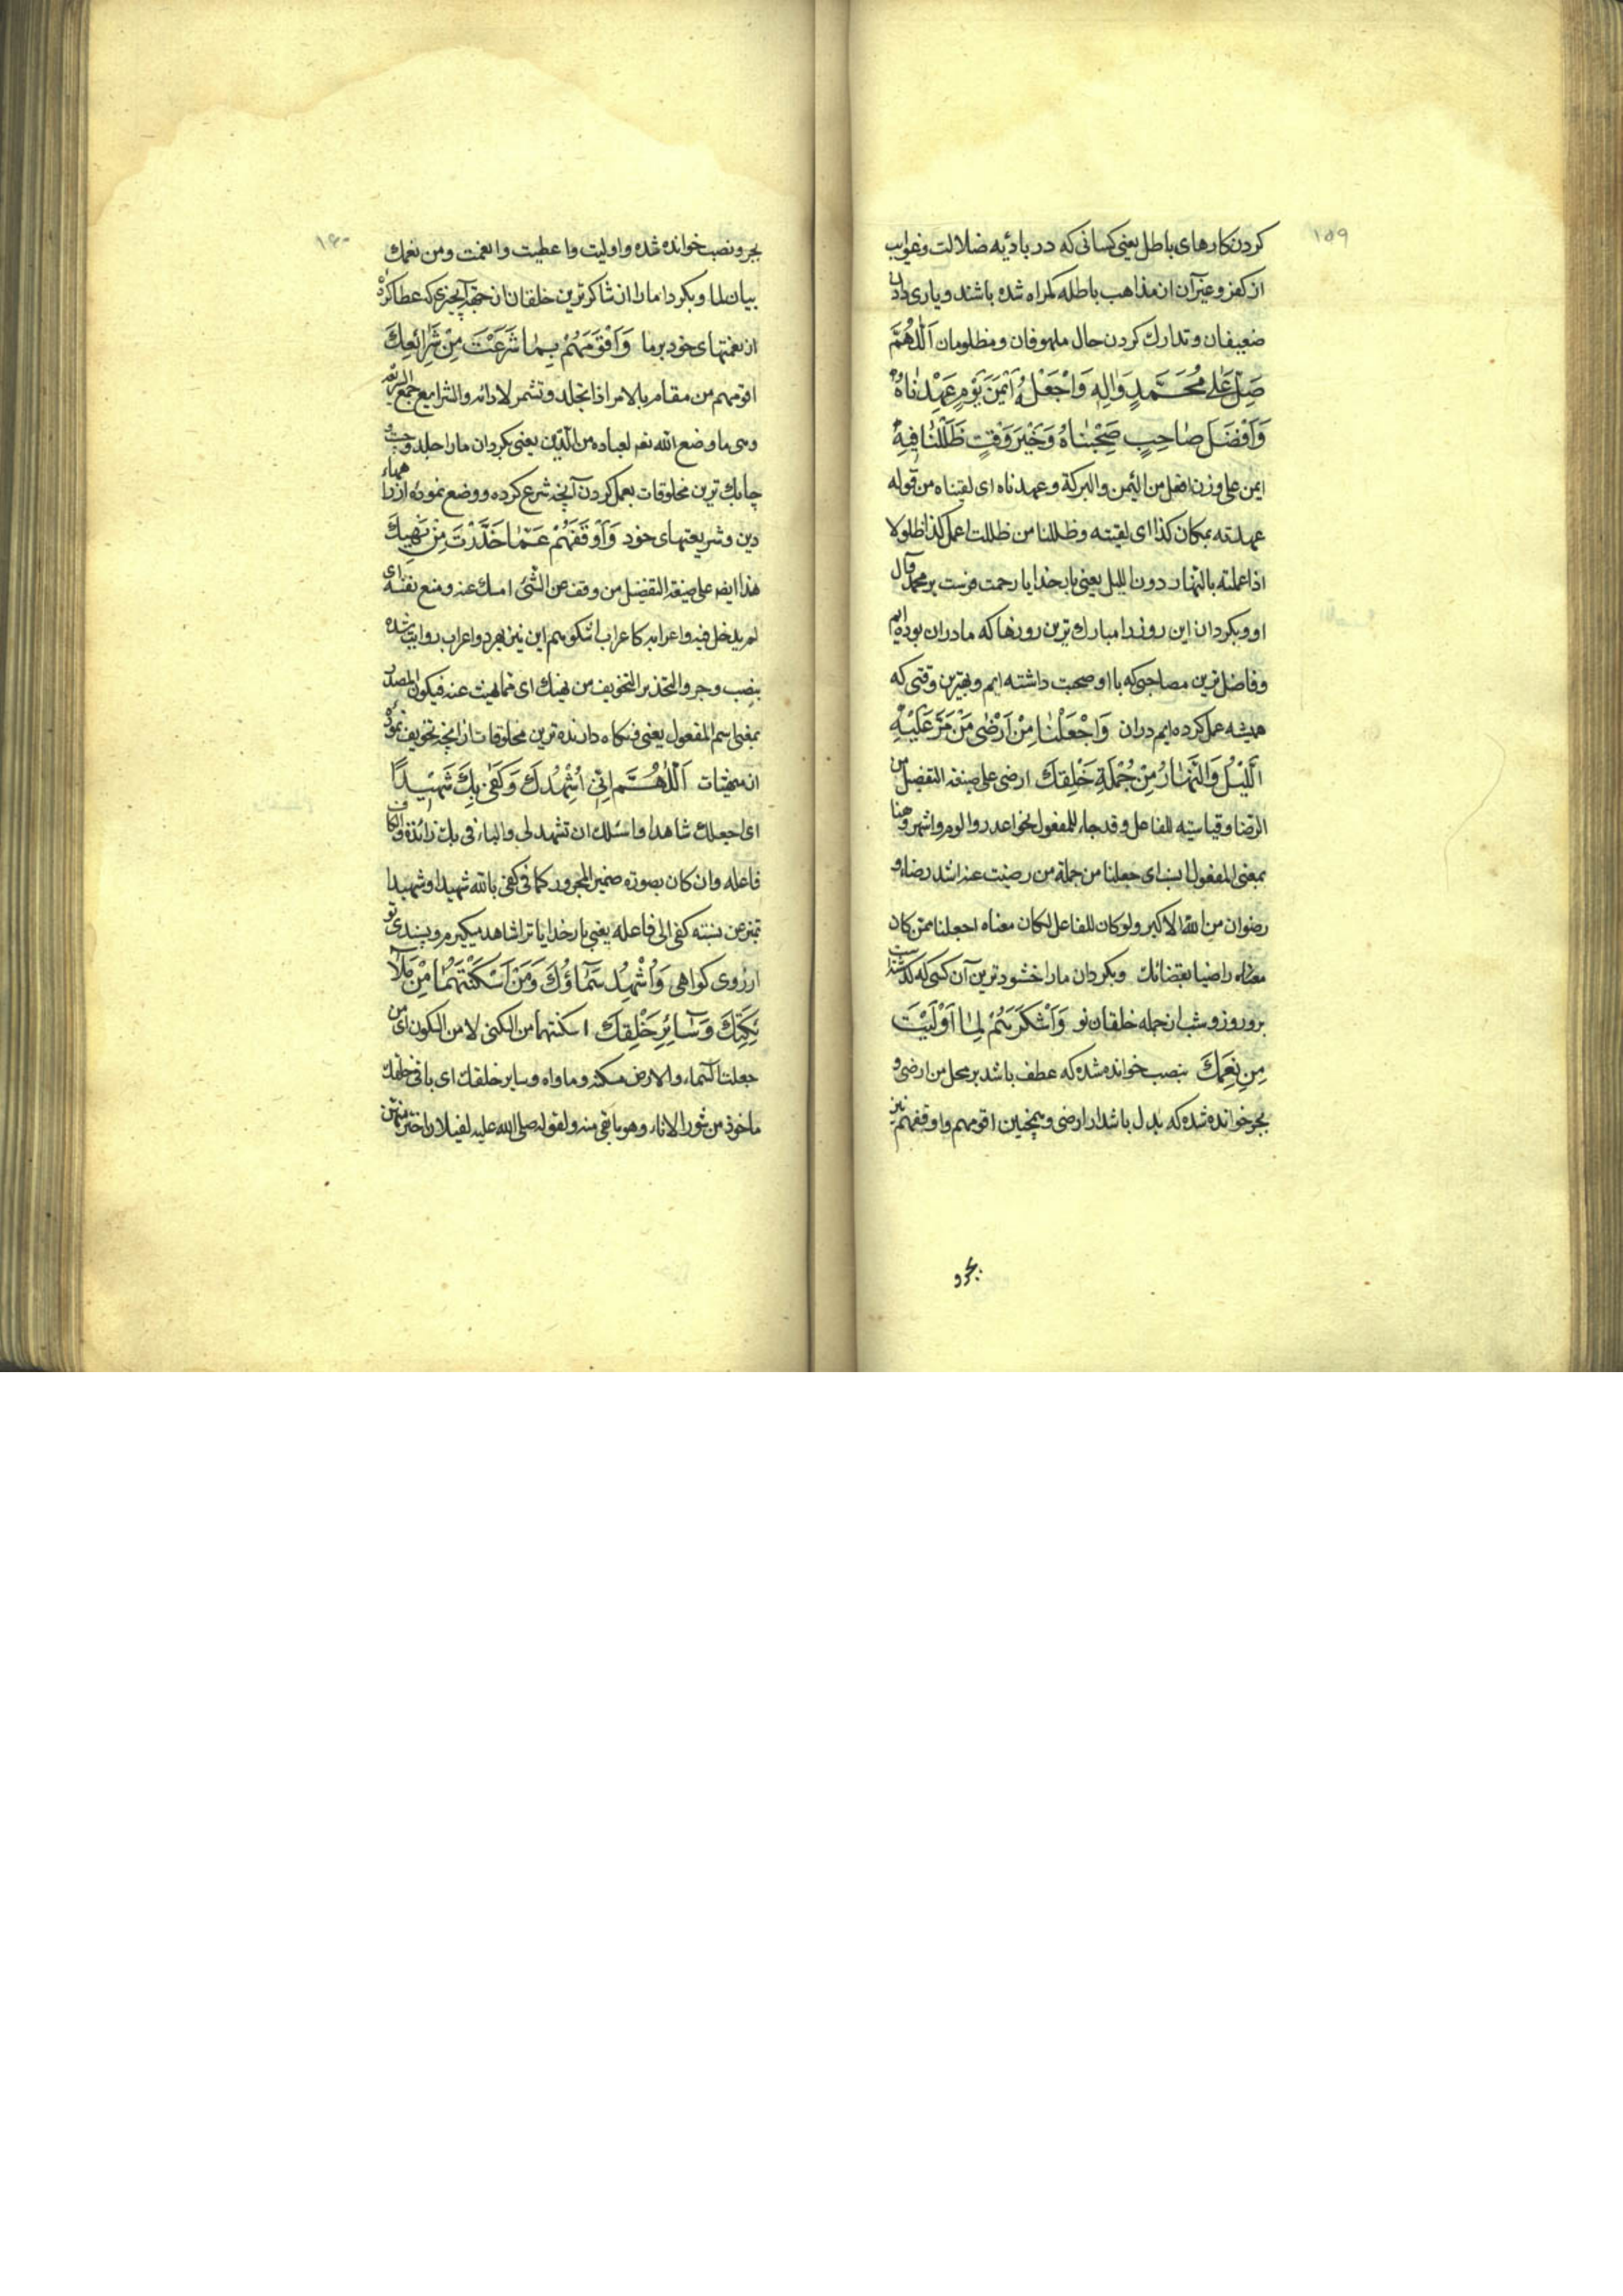 ۱۵۹
کردن کارهای باطل یعنی کسانی که در بادیه ضلالت وغوایت
از کفر وغیر آن از مذاهب باطله کمراه شده باشند ویاری دادن
ضعیفان وتدارك کردن حال ملهوفان ومظلومان اَللّٰهُمَّ
صَلِّ عَلٰى مُحَمَّدٍ وَاٰلِهِ وَاجْعَلْهُ اَيْمَنَ يَوْمٍ عَهِدْنٰاهُ
وَاَفْضَلَ صٰاحِبٍ صَحِبْنٰاهُ وَخَيْرَ وَقْتٍ ظَلَلْنٰا فِيهِ
ایمن علی وزن افعل من الیمن والبرکة وعهدناه ای لقیناه من قوله
عهدته بمکان کذا ای لقیته وظللنا من ظللت اعمل کذا ظلولا
اذا عملته بالنهار دون اللیل یعنی بار خدایا رحمت فرست بر محمد وآل
او وبکردان این روز را مبارك ترین روزها که ما دران بوده ایم
وفاضل ترین مصاحبی که با او صحبت داشته ایم وبهترین وقتی که
همیشه عمل کرده ایم دران وَاجْعَلْنٰا مِنْ اَرْضٰى مَنْ مَرَّ عَلَيْهِ
اللَّيْلُ وَالنَّهٰارُ مِنْ جُمْلَةِ خَلْقِكَ ارضی علی صیغة التفضیل من
الرضا وقیاسیته للفاعل وقد جاء للمفعول نحو اعذر والوم واشهر وهنا
بمعنی المفعول ای جعلنا من جملة من رضیت عنه اشد رضاء و
رضوان من الله الاکبر ولو کان للفاعل لکان معناه اجعلنا ممن کان
معناه راضیا بقضائك وبکردان ما را خشنودترین آن کسی که کذشته است
برو روز وشب از جمله خلقان تو وَاَشْكَرَهُمْ لِمٰا اَوْلَيْتَ
مِنْ نِعَمِكَ بنصب خوانده شده که عطف باشد بر محل من ارضی و
بجر خوانده شده که بدل باشد از ارضی وهمچنین اقومهم واوقفهم نیز
بجر و
۱۶۰
بجر ونصب خوانده شده واولیت وا عطیت وانعمت ومن نعمك
بیان لما وبکردا ما را از شاکرترین خلقان از جهة آنچیزی که عطا کرده
از نعمتهای خود بر ما وَاَقْوَمَهُمْ بِمٰا شَرَعْتَ مِنْ شَرٰائِعِكَ
اقومهم من مقام بالامر اذا تجلد وتشمر لادائه والشرایع جمع الشریعة
وهی ما وضع الله تعم لعباده من الدّین یعنی بکردان ما را جلد و
چابك ترین مخلوقات بعمل کردن آنچه شرع کرده ووضع نموده از راههاء
دین وشریعتهای خود وَاَوْقَفَهُمْ عَمّٰا حَذَّرْتَ مِنْ نَهْيِكَ
هذا ایضا علی صیغة التفضیل من وقف عن الشیٔ امسك عنه ومنع نفسه ای
لم یدخل فیه واعرابه کاعراب اشکرهم این نیز بهر دو اعراب روایت شده
بنصب وجر والتحذیر التخویف من نهیك ای مما نهیت عنه فیکون المصدر
بمعنی اسم المفعول یعنی ونکاه دارنده ترین مخلوقات از آنچه تخویف نموده
از منهیات اَللّٰهُمَّ اِنّٖى اُشْهِدُكَ وَكَفٰى بِكَ شَهٖيداً
ای اجعلك شاهدا واسئلك ان تشهد لی والباء فی بك زائدة والکاف
فاعله وان کان بصورة ضمیر المجرور کما فی کفی بالله شهیدا وشهیدا
تمیز من نسبته کفی الی فاعله یعنی بار خدایا ترا شاهد میکیرم وبسندی تو
از روی کواهی وَاُشْهِدُ سَمٰاؤُكَ وَمَنْ اَسْكَنْتَهُمٰا مِنْ مَلاٰ
ئِكَتِكَ وَسٰائِرِ خَلْقِكَ اسکنتهما من السکنی لا من السکون ای من
جعلت السماء والارض مسکنه وماواه وسایر خلقك ای باقی خلقك
ماخوذ من سور الاناء وهو ما بقی منه ولقوله صلی الله علیه لغیلان اختر منهن